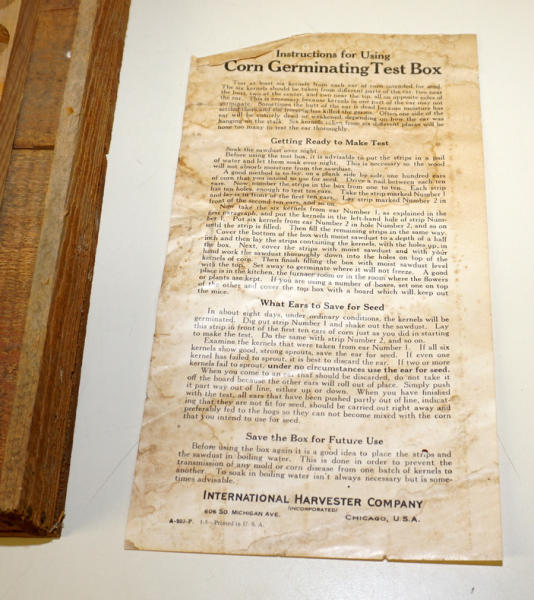 Instructions for Using
Corn Germinating Test Box
Test at least six kernels from each ear of corn intended for seed.
The six kernels should be taken from different parts of the ear, two near
the butt, two at the center, and two near the tip, all on opposite sides of
the ear. This is necessary because kernels in one part of the ear may not
germinate. Sometimes the butt of the ear is dead because moisture has
settled there and the freezing has killed the germs. Often one side of the
ear will be entirely dead or weakened, depending on how the ear was
hanging on the stalk. Six kernels taken from six different places will be
none too many to test the ear thoroughly.
Getting Ready to Make Test
Soak the sawdust over night.
Before using the test box, it is advisable to put the strips in a pail
of water and let them soak over night. This is necessary so the wood
will not absorb moisture from the sawdust.
A good method is to lay, on a plank side by side, one hundred ears
of corn that you intend to use for seed. Drive a nail between each ten
ears. Now, number the strips in the box from one to ten. Each strip
has ten holes, enough to test ten ears. Take the strip marked Number 1
and lay in front of the first ten ears. Lay strip marked Number 2 in
front of the second ten ears, and so on.
Now take the six kernels from ear Number 1, as explained in the
first paragraph, and put the kernels in the left-hand hole of strip Num-
ber 1. Put six kernels from ear Number 2 in hole Number 2, and so on
until the strip is filled. Then fill the remaining strips in the same way.
Cover the bottom of the box with moist sawdust to a depth of a half
inch and then lay the strips containing the kernels, with the holes up, in
the box. Next, cover the strips with moist sawdust and with your
hand pack the sawdust thoroughly down into the holes on top of the
kernels of corn. Then finish filling the box with moist sawdust level
with the top. Set away to germinate where it will not freeze. A good
place is in the kitchen, the furnace room or in the room where the flowers
or plants are kept. If you are using a number of boxes, set one on top
of the other and cover the top box with a board which will keep out
the mice.
What Ears to Save for Seed
In about eight days, under ordinary conditions, the kernels will be
germinated. Dig out strip Number 1 and shake out the sawdust. Lay
this strip in front of the first ten ears of corn just as you did in starting
to make the test. Do the same with strip Number 2, and so on.
Examine the kernels that were taken from ear Number 1. If all six
kernels show good, strong sprouts, save the ear for seed. If even one
kernel has failed to sprout, it is best to discard the ear. If two or more
kernels fail to sprout, under no circumstances use the ear for seed.
When you come to an ear that should be discarded, do not take it
off the board because the other ears will roll out of place. Simply push
it part way out of line, either up or down. When you have finished
with the test, all ears that have been pushed partly out of line, indicat-
ing that they are not fit for seed, should be carried out right away and
preferably fed to the hogs so they can not become mixed with the corn
that you intend to use for seed.
Save the Box for Future Use
Before using the box again it is a good idea to place the strips and
the sawdust in boiling water. This is done in order to prevent the
transmission of any mold or corn disease from one batch of kernels to
another. To soak in boiling water isn't always necessary but is some-
times advisable.
INTERNATIONAL HARVESTER COMPANY
(INCORPORATED)
606 SO. MICHIGAN AVE. CHICAGO, U.S.A.
Printed in U. S. A.